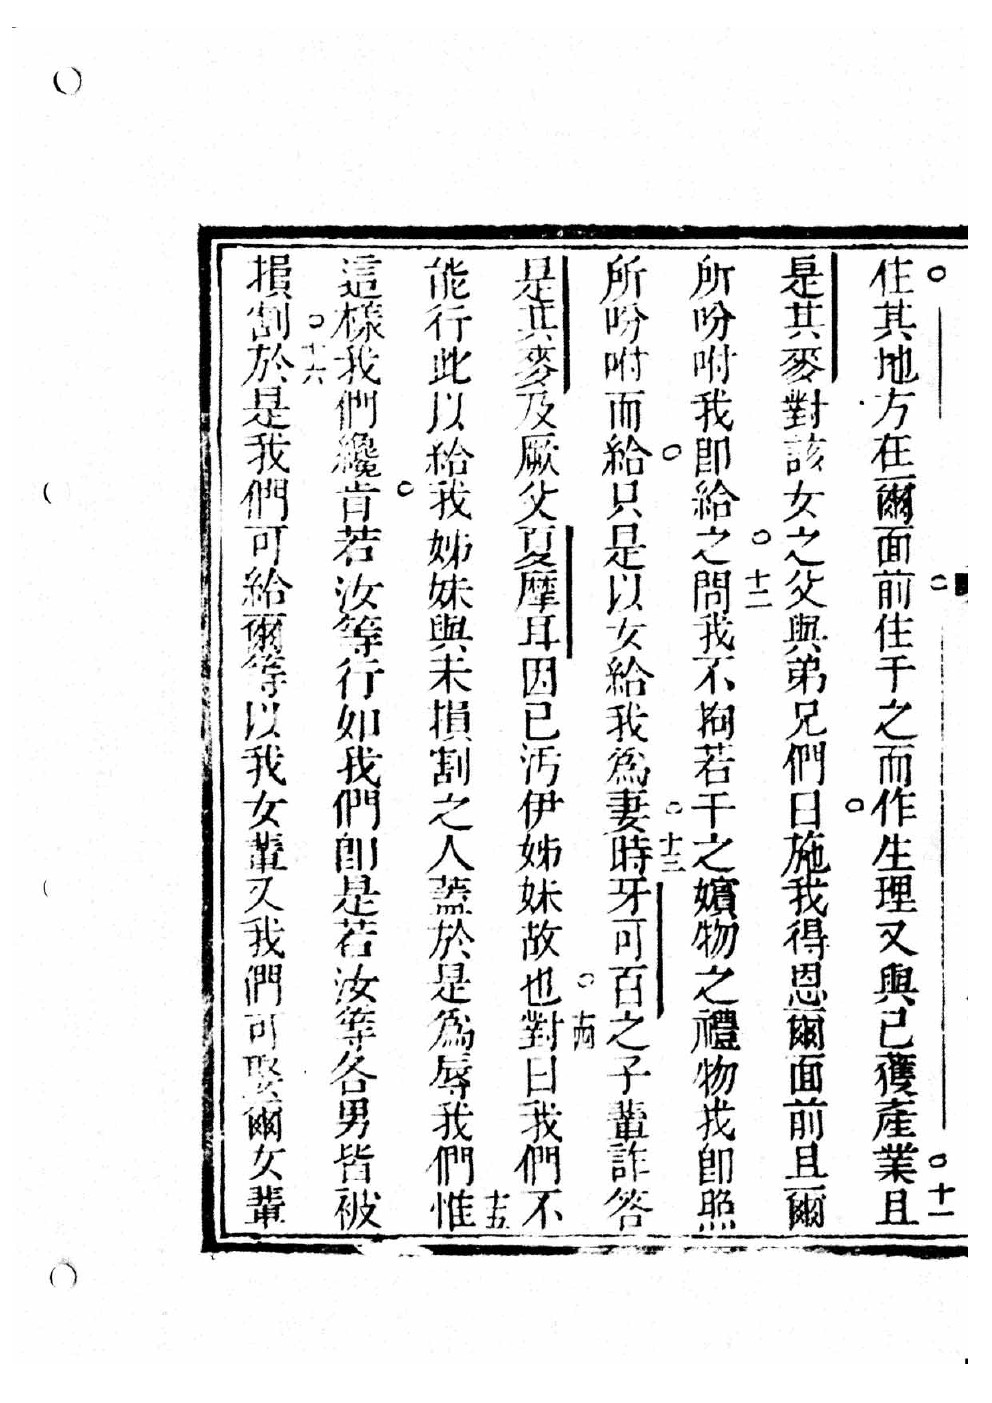 住其地方在爾面前住于之而作生理又與已獲產業且
十一
是其麥對該女之父與弟兄們曰施我得恩爾面前且爾
所吩咐我即給之問我不拘若干之嬪物之禮物我即照
十二
所吩咐而給只是以女給我為妻時牙可百之子輩詐答
十三
是其麥及厥父夏摩耳因已汚伊姊妹故也對曰我們不
十四
能行此以給我姊妹與未損割之人蓋於是為辱我們惟
十五
這樣我們纔肯若汝等行如我們即是若汝等各男皆被
損割於是我們可給爾等以我女輩又我們可娶爾女輩
十六